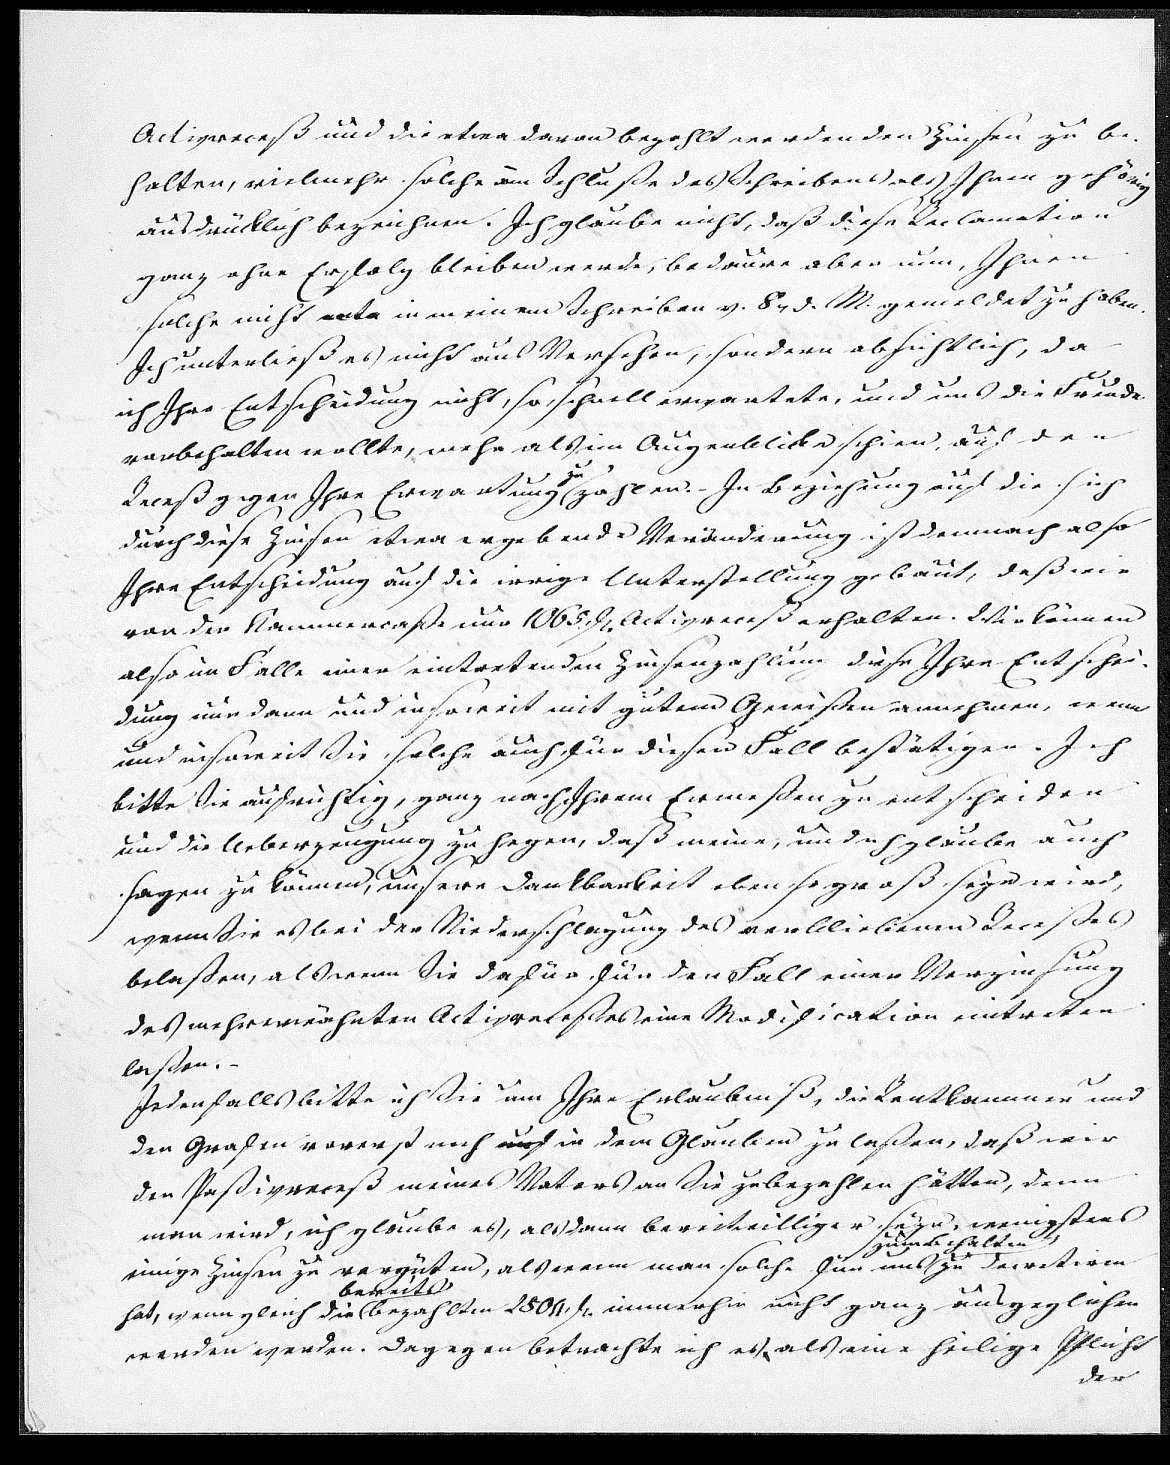 Activreceß und die etwa davon bezahlt werdenden Zinsen zu be-
halten, vielmehr solche am Schluße des Schreibens als Ihnen gehörig
ausdrücklich bezeichnen. Ich glaube nicht, daß diese Reclamation
ganz ohne Erfolg bleiben werde, bedaure aber nun, Ihnen
solche nicht in meinem Schreiben v. 8n d. M. gemeldet zu haben.
Ich unterließ es nicht aus Versehen, sondern absichtlich, da
ich Ihre Entscheidung nicht so schnell erwartete, und uns die Freude
vorbehalten wollte, mehr als im Augenblicke schien, auf den
Receß gegen Ihre Erwartung zu zahlen. - In Beziehung auf die sich
durch diese Zinsen etwa ergebende Veränderung ist demnach also
Ihre Entscheidung auf die irrige Unterstellung gebaut, daß wir
von der Kammercaße nur 1065 fl. Activreceß erhalten. Wir können
also im Falle einer eintretenden Zinsenzahlung diese Ihre Entschei-
dung nur dann und insoweit mit gutem Gewißen annehmen, wenn
und insoweit Sie solche auch für diesen Fall bestätigen. Ich
bitte Sie aufrichtig, ganz nach Ihrem Ermeßen zu entscheiden
und die Ueberzeugung zu hegen, daß meine, und ich glaube auch
sagen zu können, unsere Dankbarkeit eben so groß seyn wird,
wenn Sie es bei der Niederschlagung des verbliebenen Receßes
belaßen, als wenn Sie dafür für den Fall einer Verzinsung
des mehrerwähnten Activreceßes eine Modification eintreten
laßen. -
Jedenfalls bitte ich Sie um Ihre Erlaubniß, die Rentkammer und
den Grafen vorerst noch in dem Glauben zu laßen, daß wir
den Paßivreceß meines Vaters an Sie zu bezahlen hätten, denn
man wird, ich glaube es, alsdann bereitwilliger seyn, wenigstens
einige Zinsen zu vergüten, als wenn man solche für uns zum behalten zu decretiren
hat, wenn gleich die bereits bezahlten 250 fl. immerhin nicht ganz ausgeglichen
werden werden. Dagegen betrachte ich es als eine heilige Pflicht
der